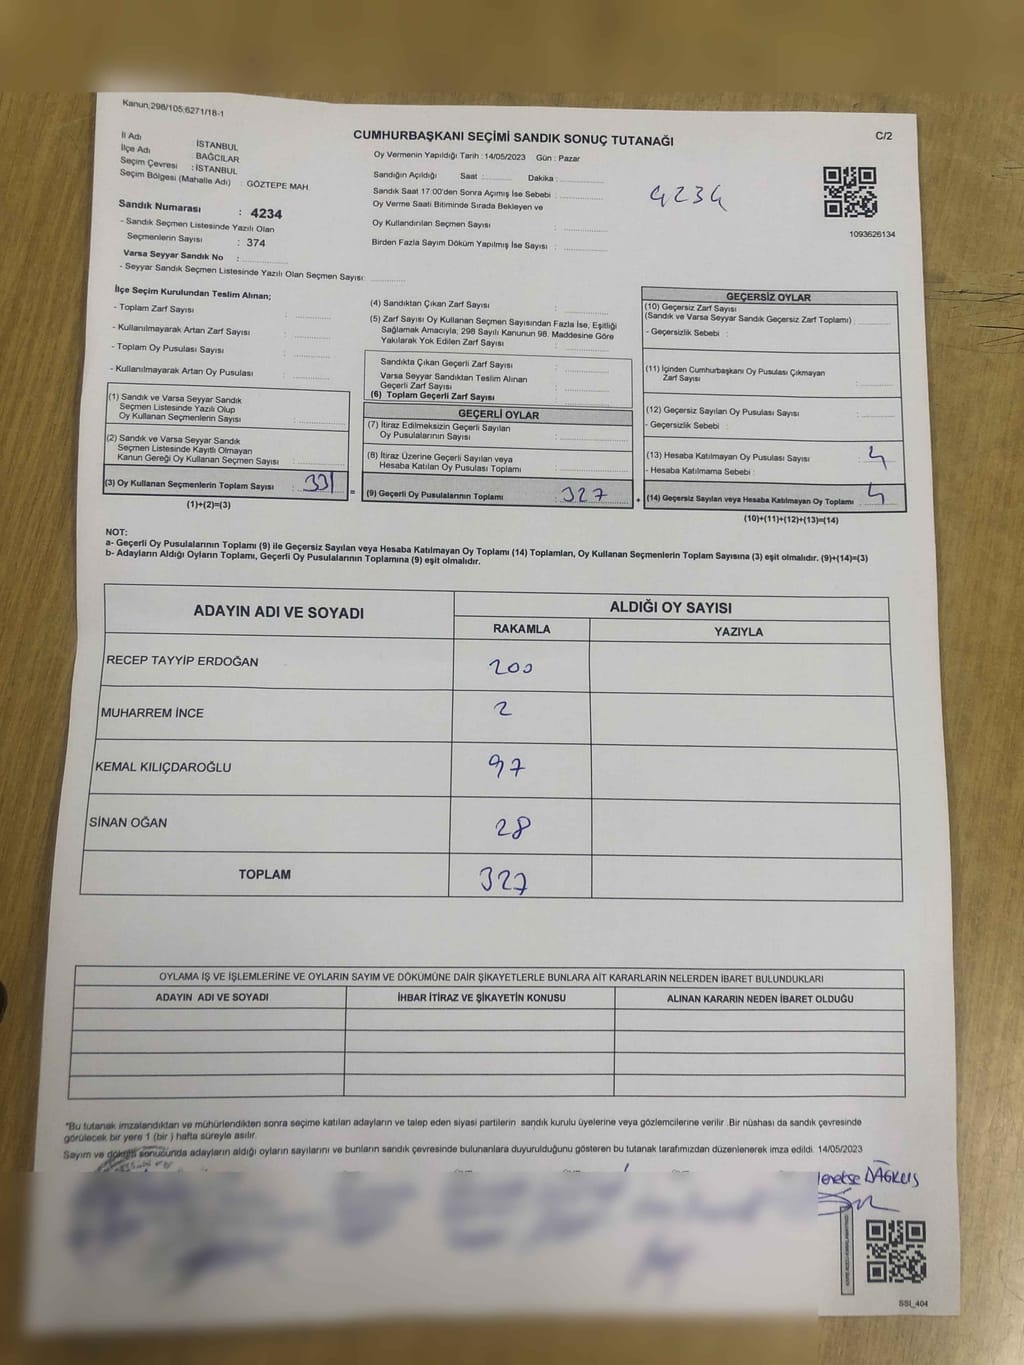 Kanun;298/105;6271/18-1
CUMHURBAŞKANI SEÇİMİ SANDIK SONUÇ TUTANAĞI
C/2
İl Adı : İSTANBUL
İlçe Adı : BAĞCILAR
Seçim Çevresi : İSTANBUL
Seçim Bölgesi (Mahalle Adı) : GÖZTEPE MAH.
Sandık Numarası : 4234
- Sandık Seçmen Listesinde Yazılı Olan
Seçmenlerin Sayısı : 374
Varsa Seyyar Sandık No :
- Seyyar Sandık Seçmen Listesinde Yazılı Olan Seçmen Sayısı:
Oy Vermenin Yapıldığı Tarih : 14/05/2023 Gün : Pazar
Sandığın Açıldığı Saat : Dakika :
Sandık Saat 17:00'den Sonra Açımış İse Sebebi :
Oy Verme Saati Bitiminde Sırada Bekleyen ve
Oy Kullandırılan Seçmen Sayısı :
Birden Fazla Sayım Döküm Yapılmış İse Sayısı :
4234
1093626134
İlçe Seçim Kurulundan Teslim Alınan;
- Toplam Zarf Sayısı :
- Kullanılmayarak Artan Zarf Sayısı :
- Toplam Oy Pusulası Sayısı :
- Kullanılmayarak Artan Oy Pusulası :
(1) Sandık ve Varsa Seyyar Sandık
Seçmen Listesinde Yazılı Olup
Oy Kullanan Seçmenlerin Sayısı :
(2) Sandık ve Varsa Seyyar Sandık
Seçmen Listesinde Kayıtlı Olmayan
Kanun Gereği Oy Kullanan Seçmen Sayısı :
(3) Oy Kullanan Seçmenlerin Toplam Sayısı : 331 =
(1)+(2)=(3)
(4) Sandıktan Çıkan Zarf Sayısı :
(5) Zarf Sayısı Oy Kullanan Seçmen Sayısından Fazla İse, Eşitliği
Sağlamak Amacıyla; 298 Sayılı Kanunun 98. Maddesine Göre
Yakılarak Yok Edilen Zarf Sayısı :
Sandıkta Çıkan Geçerli Zarf Sayısı :
Varsa Seyyar Sandıktan Teslim Alınan
Geçerli Zarf Sayısı :
(6) Toplam Geçerli Zarf Sayısı :
GEÇERLİ OYLAR
(7) İtiraz Edilmeksizin Geçerli Sayılan
Oy Pusulalarının Sayısı :
(8) İtiraz Üzerine Geçerli Sayılan veya
Hesaba Katılan Oy Pusulası Toplamı :
(9) Geçerli Oy Pusulalarının Toplamı : 327 +
GEÇERSİZ OYLAR
(10) Geçersiz Zarf Sayısı
(Sandık ve Varsa Seyyar Sandık Geçersiz Zarf Toplamı) :
- Geçersizlik Sebebi :
(11) İçinden Cumhurbaşkanı Oy Pusulası Çıkmayan
Zarf Sayısı :
(12) Geçersiz Sayılan Oy Pusulası Sayısı :
- Geçersizlik Sebebi :
(13) Hesaba Katılmayan Oy Pusulası Sayısı : 4
- Hesaba Katılmama Sebebi :
(14) Geçersiz Sayılan veya Hesaba Katılmayan Oy Toplamı : 4
(10)+(11)+(12)+(13)=(14)
NOT:
a- Geçerli Oy Pusulalarının Toplamı (9) ile Geçersiz Sayılan veya Hesaba Katılmayan Oy Toplamı (14) Toplamları, Oy Kullanan Seçmenlerin Toplam Sayısına (3) eşit olmalıdır. (9)+(14)=(3)
b- Adayların Aldığı Oyların Toplamı, Geçerli Oy Pusulalarının Toplamına (9) eşit olmalıdır.
ADAYIN ADI VE SOYADI
ALDIĞI OY SAYISI
RAKAMLA YAZIYLA
RECEP TAYYİP ERDOĞAN 200
MUHARREM İNCE 2
KEMAL KILIÇDAROĞLU 97
SİNAN OĞAN 28
TOPLAM 327
OYLAMA İŞ VE İŞLEMLERİNE VE OYLARIN SAYIM VE DÖKÜMÜNE DAİR ŞİKAYETLERLE BUNLARA AİT KARARLARIN NELERDEN İBARET BULUNDUKLARI
ADAYIN ADI VE SOYADI İHBAR İTİRAZ VE ŞİKAYETİN KONUSU ALINAN KARARIN NEDEN İBARET OLDUĞU
*Bu tutanak imzalandıktan ve mühürlendikten sonra seçime katılan adayların ve talep eden siyasi partilerin sandık kurulu üyelerine veya gözlemcilerine verilir. Bir nüshası da sandık çevresinde
görülecek bir yere 1 (bir ) hafta süreyle asılır.
Sayım ve döküm sonucunda adayların aldığı oyların sayılarını ve bunların sandık çevresinde bulunanlara duyurulduğunu gösteren bu tutanak tarafımızdan düzenlenerek imza edildi. 14/05/2023
SSI_404